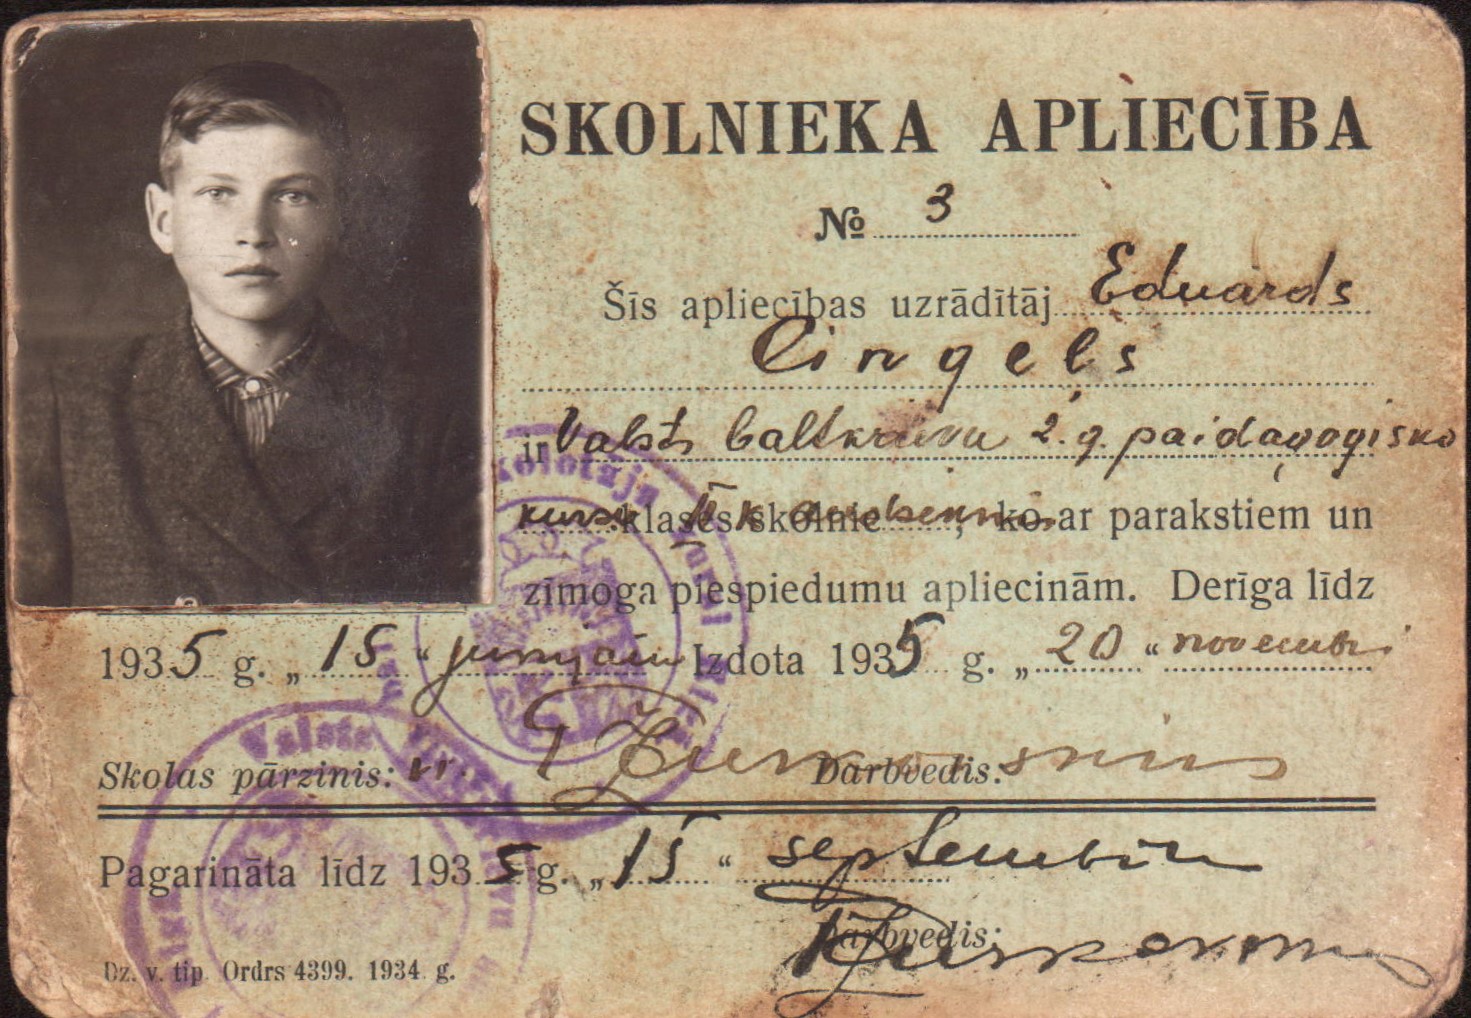 SKOLNIEKA APLIECĪBA
№ 3
Šīs apliecības uzrādītāj Eduards
Cingeļs
ir Valsts baltkrievu 2.g. paidagoģisko
kursu II klases skolnie , ko ar parakstiem un
zīmoga piespiedumu apliecinām. Derīga līdz
1935 g. „15 “ junijam Izdota 1935 g. „20 “ novembrī
Skolas pārzinis: Darbvedis:
Pagarināta līdz 1935 g. „15 “ septembrim
Darbvedis:
Dz. v. tip. Ordrs 4399. 1934. g.
Valsts